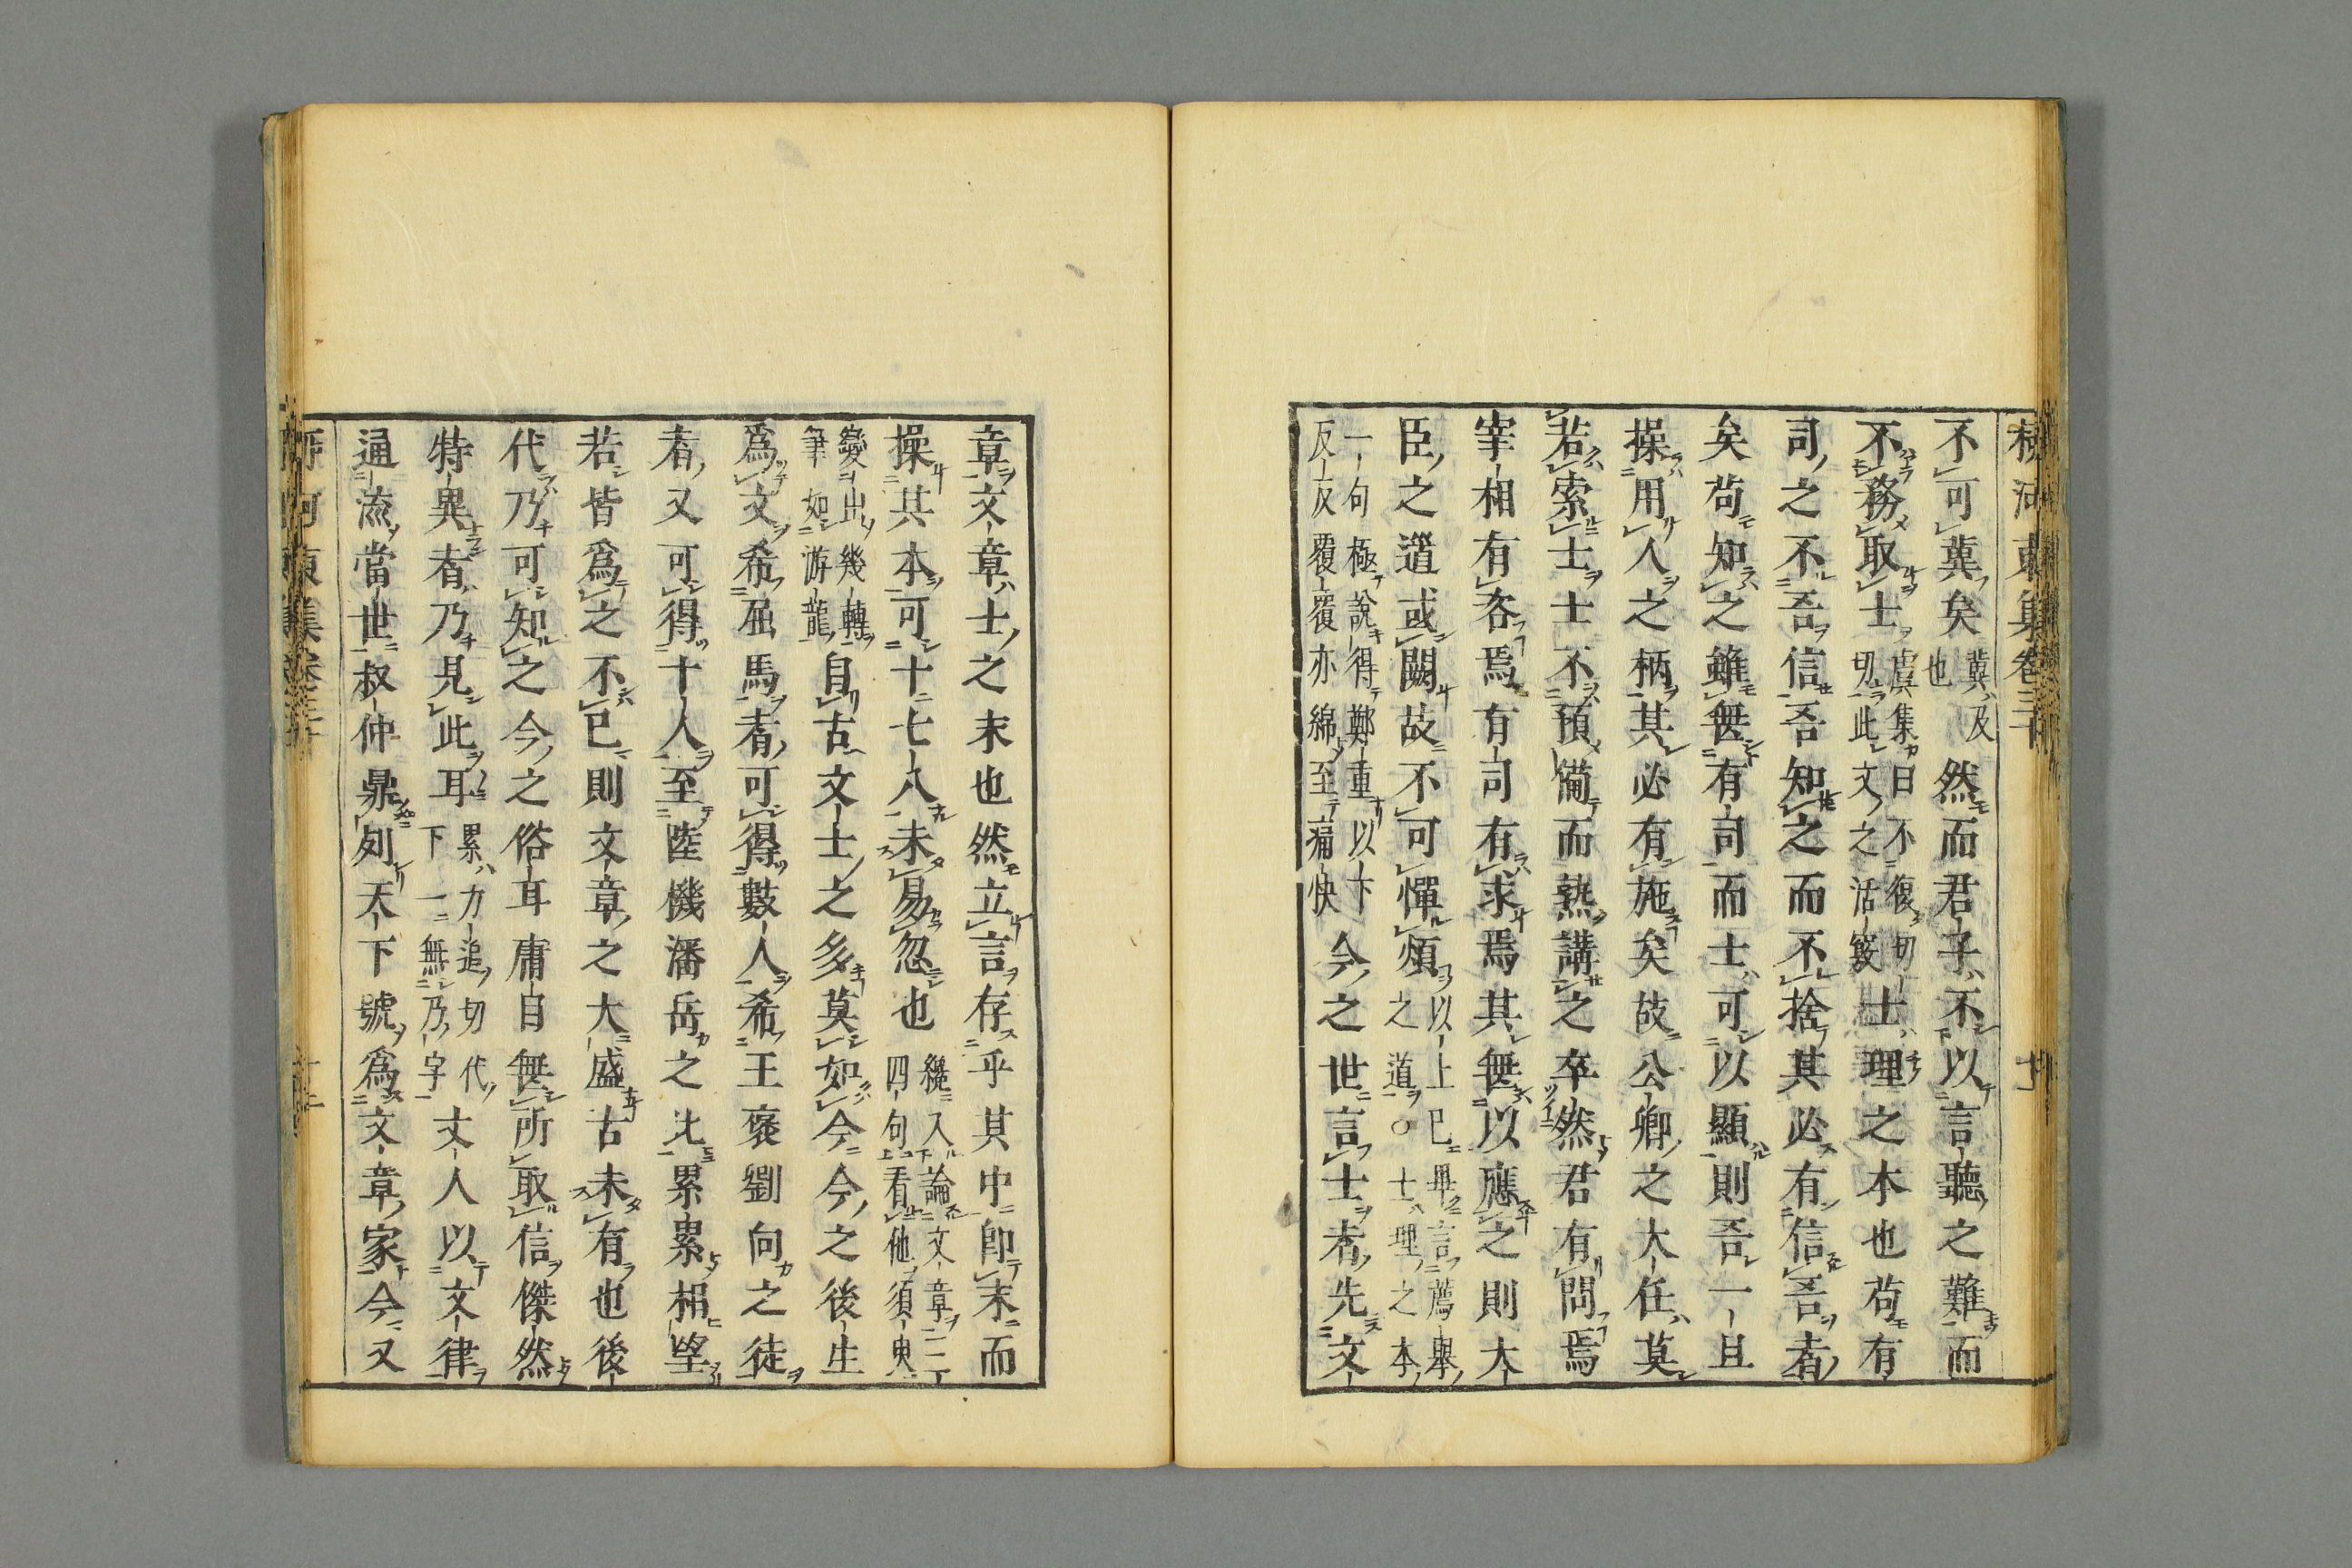 柳河東集卷三十
不可冀矣冀及也然而君子不以言聽之難而
不務取士虞集曰不復切切此文之活竅士理之本也苟有
司之不吾信吾知之而不捨其必有信吾者
矣苟知之雖無有司而士可以顯則吾一旦
操用人之柄其必有施矣故公卿之大任莫
若索士士不預備而熟講之卒然君有問焉
宰相有咨焉有司有求焉其無以應之則大
臣之道或闕故不可憚煩以上已畢言薦舉之道○士理之本
一句極說得鄭重以下反反覆覆亦綿至痛快今之世言士者先文
章文章士之末也然立言存乎其中即末而
操其本可十七八未易忽也纔入論文章二三四句看他須臾
變出幾轉筆如游龍自古文士之多莫如今今之後生
為文希屈馬者可得數人希王褒劉向之徒
者又可得十人至陸機潘岳之比累累相望
若皆為之不已則文章之大盛古未有也後
代乃可知之今之俗耳庸目無所取信傑然
特異者乃見此耳累力追切代下一無乃字丈人以文律
通流當世叔仲鼎列天下號為文章家今又